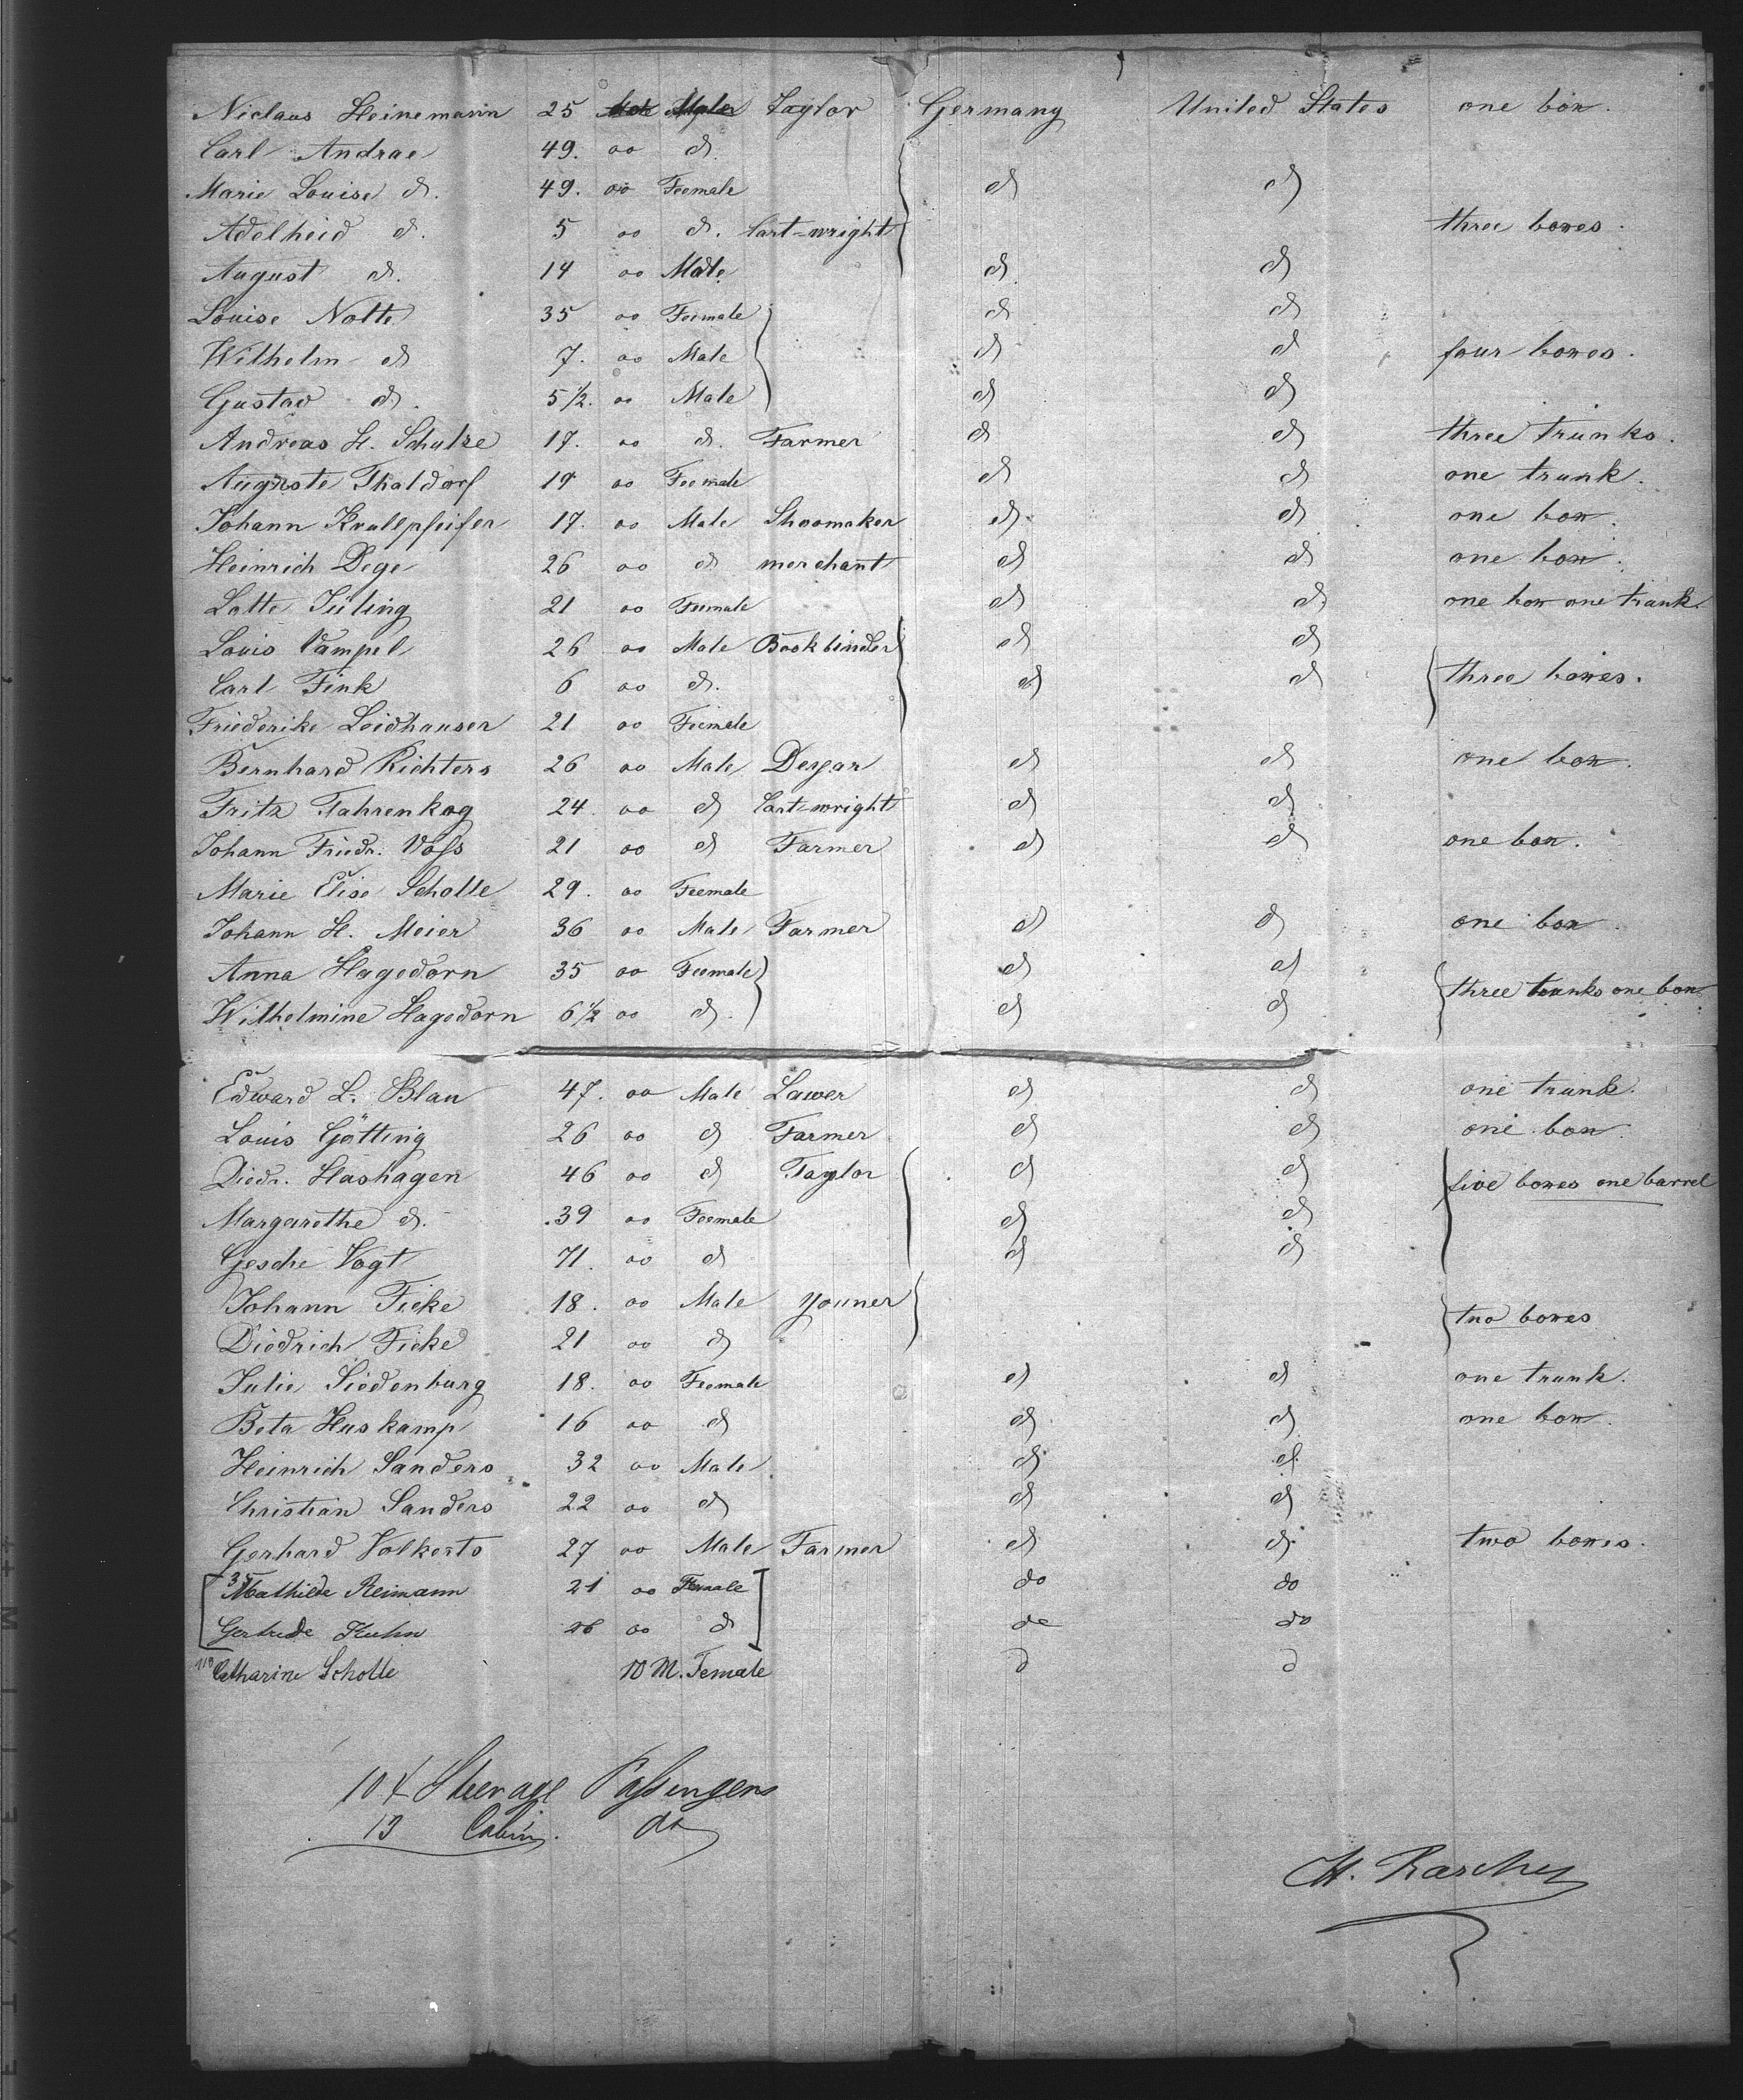 Niclaus Heinemann 25 Male Taylor Germany United States one box.
Carl Andrae 49. oo d.
Marie Louise d. 49. oo Feemale d d
Adelheid d. 5 oo d. Cart-wright three boxes.
August d. 14 oo Male d d
Louise Nolte 35 oo Feemale d d
Wilhelm d 7. oo Male d d four boxes.
Gustav d. 5 1/2. oo Male d d
Andreas H. Schulze 17. oo d. Farmer d d three trunks.
Auguste Thaldorf 19 oo Feemale d d one trunk.
Johann Krullpfeifer 17. oo Male Shoomaker d. d one box.
Heinrich Dege 26 oo d merchant d d. one box.
Lotte Jüling 21 oo Feemale d d. one box one trunk.
Louis Vampel 26 oo Male Bookbinder d d
Carl Fink 6 oo d. d d three boxes.
Friederike Leidhauser 21 oo Feemale
Bernhard Richters 26 oo Male d d one box.
Fritz Fahrenkog 24. oo d Cart-wright d d
Johann Friedr. Voss 21 oo d Farmer d d one box.
Marie Elise Scholle 29. oo Feemale
Johann H. Meier 36 oo Male Farmer d d one box
Anna Hagedorn 35 oo Feemale d d
Wilhelmine Hagedorn 6 1/2 oo d. d d three trunks one box
Edward L. Blau 47. oo Male Lawer d d one trunk.
Louis Götting 26 oo d Farmer d d one box.
Diedr. Hashagen 46 oo d Taylor d d five boxes one barrel
Margarethe d. 39 oo Feemale d d
Gesche Vogt 71. oo d d d
Johann Ficke 18. oo Male youner two boxes
Diedrich Ficke 21 oo d
Julie Siedenburg 18. oo Feemale d d one trunk.
Beta Huskamp 16 oo d d d one box.
Heinrich Sanders 32 oo Male d d.
Christian Sanders 22 oo d d d
Gerhard Volkerts 27 oo Male Farmer d d. two boxes.
Mathilde Reimann 21 oo Female do do
Gertrude Kuhn 26 oo d do do
Catharine Scholle 10 M. Female d d
104 Steerage Passengers
13 Cabin. do
H. Raschen